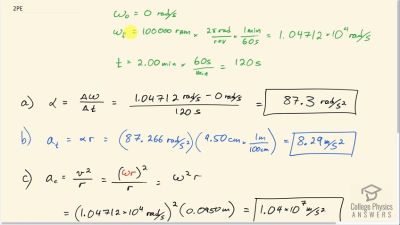 2PE
ω₀ = 0 rad/s
ω_f = 100000 rpm × 2π rad/rev × 1 min/60s = 1.04712×10⁴ rad/s
t = 2.00 min × 60s/min = 120 s
a) α = Δω/Δt = 1.04712 rad/s - 0 rad/s / 120 s = 87.3 rad/s²
b) a_t = αr = (87.266 rad/s²)(9.50 cm × 1m/100cm) = 8.29 m/s²
c) a_c = v²/r = (ωr)²/r = ω²r
= (1.04712×10⁴ rad/s)²(0.0950 m) = 1.04×10⁷ m/s²
College Physics
ANSWERS